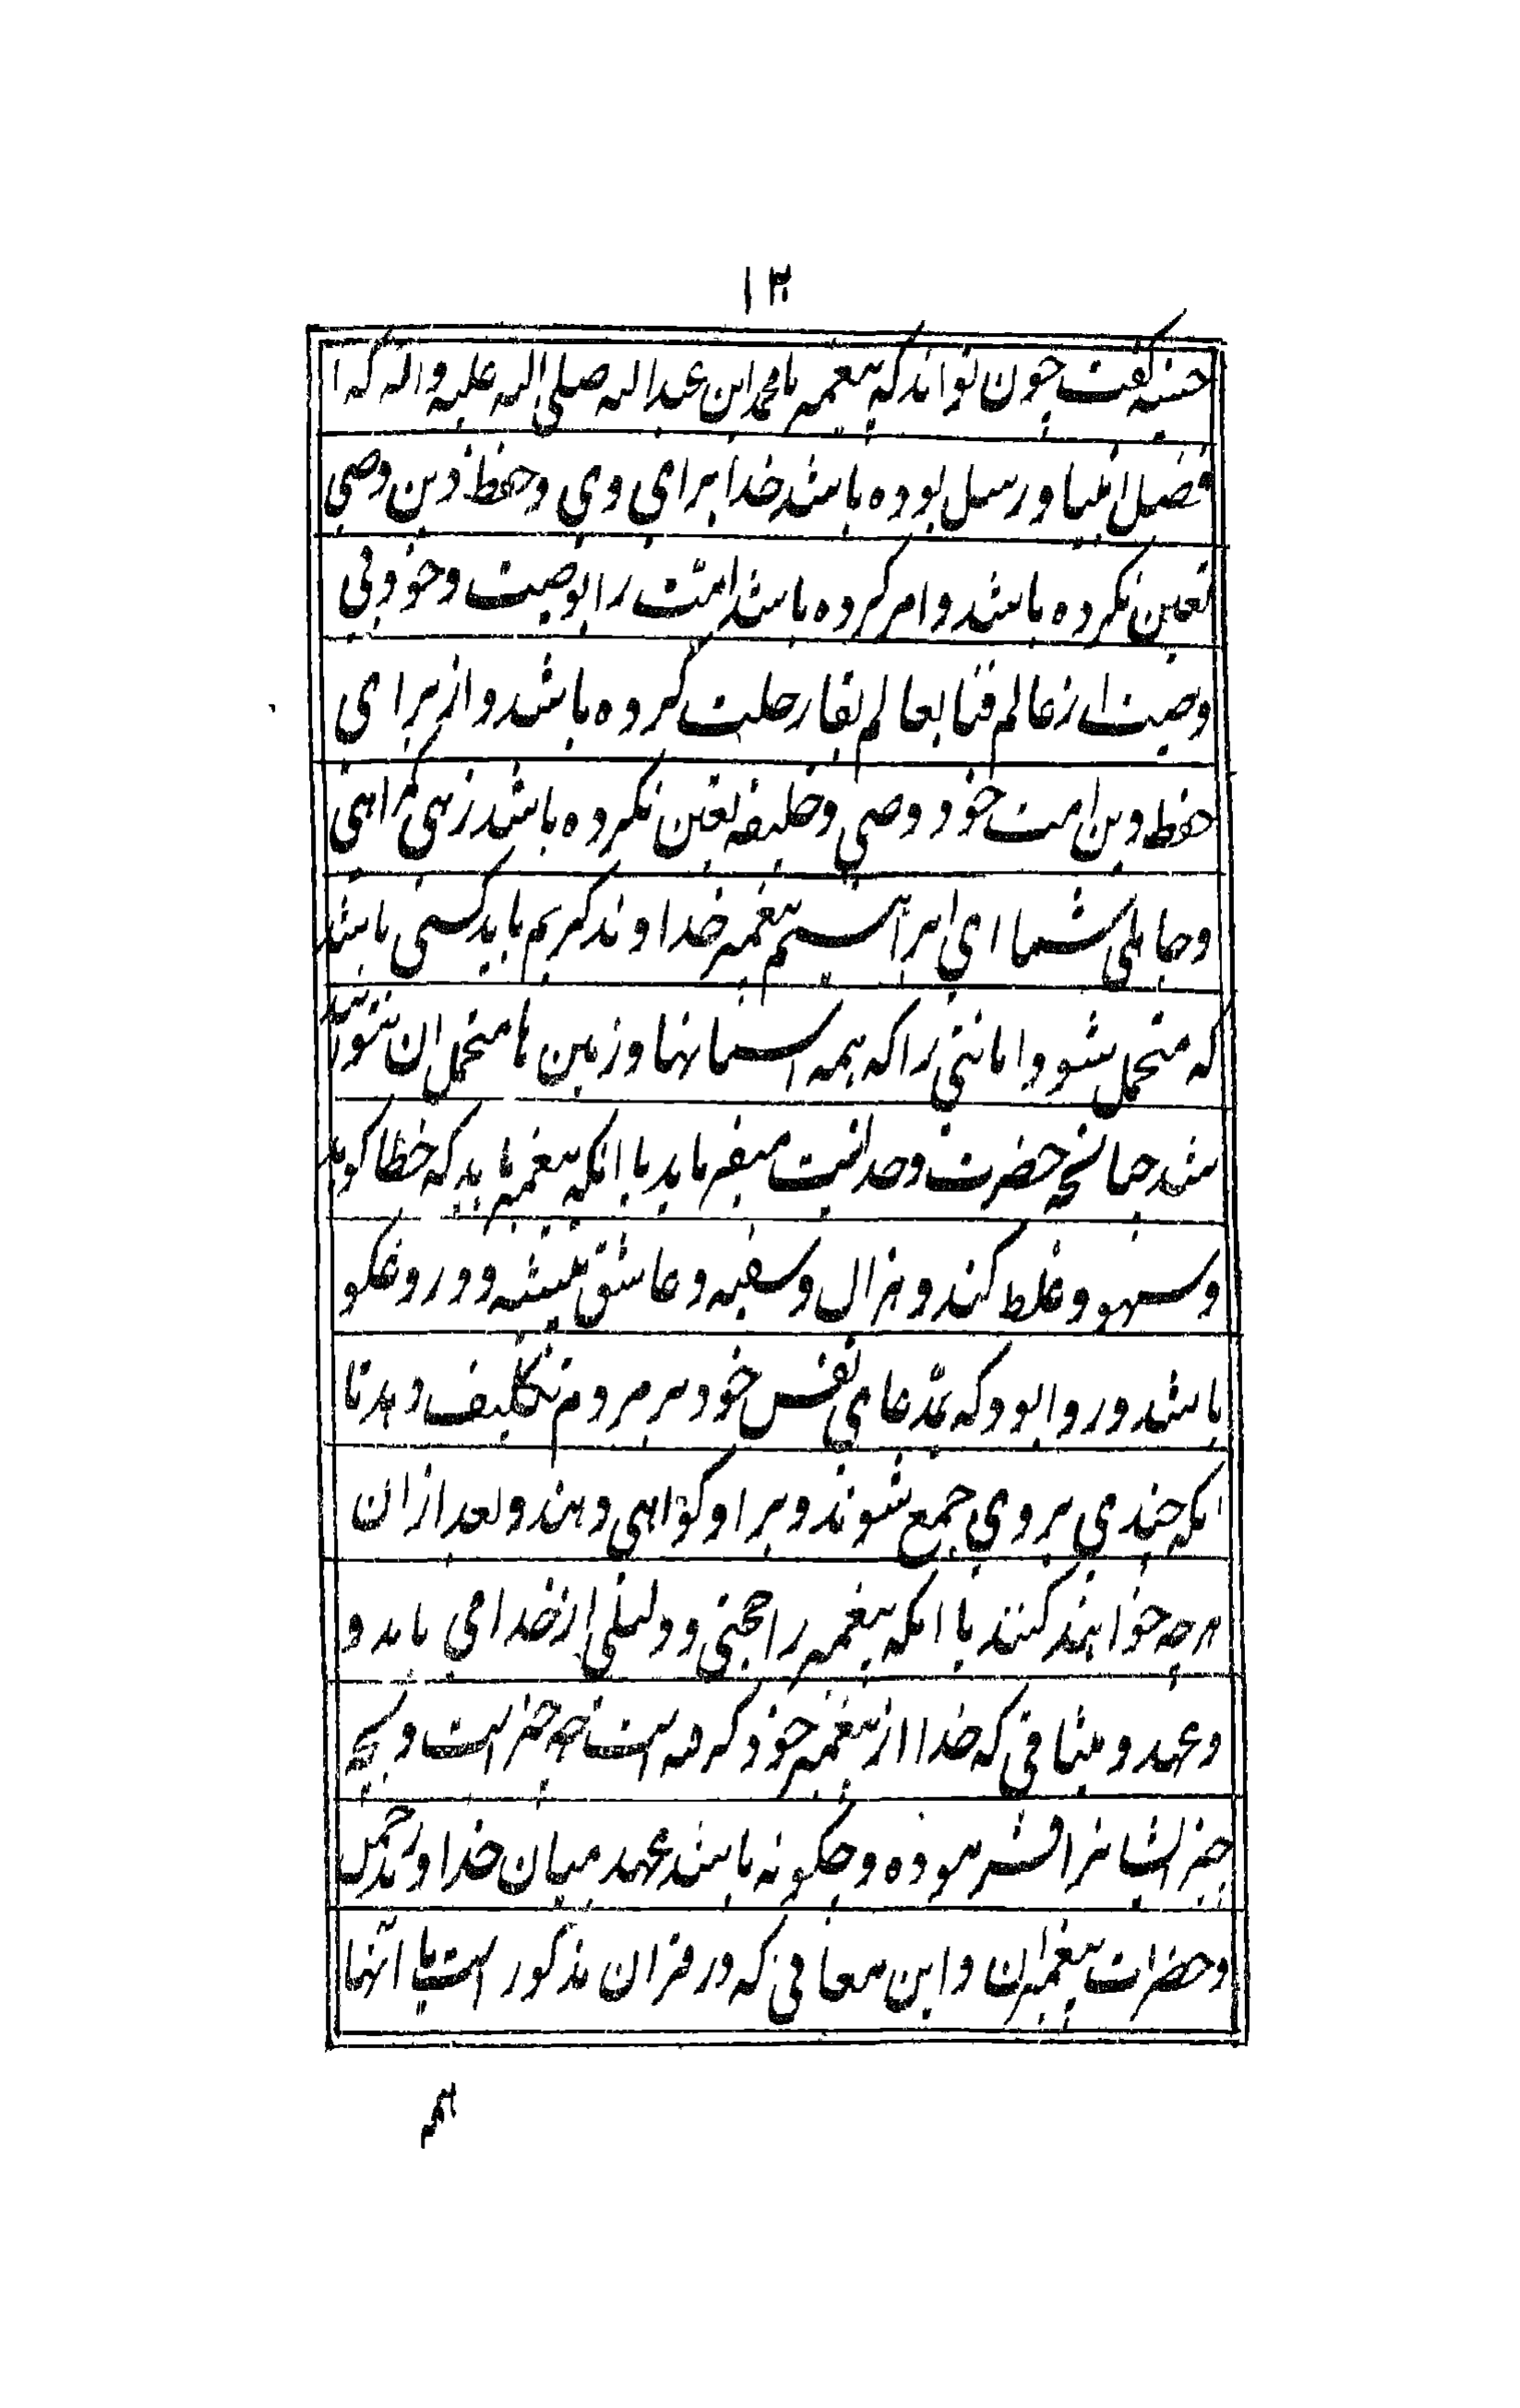 ۱۳
حسنیه گفت چون تواند که پیغمبر ما محمد ابن عبدالله صلی الله علیه واله که ا
فضل انبیا و رسل بوده باشد خدا برای وی و حفظ دین وصی
تعین نکرده باشد و امر کرده باشد امت را بوصیت و خود بی
وصیت از عالم فنا بعالم بقا رحلت کرده باشد و از برای
حفظ دین امت خود وصی و خلیفه تعین نکرده باشد زهی گمراهی
و جاهلی شما ای ابراهیم پیغمبر خداوند کریم باید کسی باشد
که متحمل شود امانتی را که همه اسمانها و زمین ها متحمل ان نتوانند
شد چنانچه حضرت وحدانیت میفرماید با انکه پیغمبر باید که خطا گوید
و سهو و غلط کند و هزال و سفیه و عاشق پیشه و دروغگو
باشد و روا بود که بمدعای نفس خود بر مردم تکلیف دهد تا
انکه چندی بروی جمع شوند و بر او گواهی دهند و بعد از ان
هرچه خواهند کنند با انکه پیغمبر را حجتی و دلیلی از خدا می باید و
و عهد و میثاقی که خدا از پیغمبر خود گرفته است چه چیز است و بچه
چیز ایشانرا فرموده و چگونه باشد عهد میان خداوند
و حضرات پیغمبران و این معانی که در قران مذکور است با انها